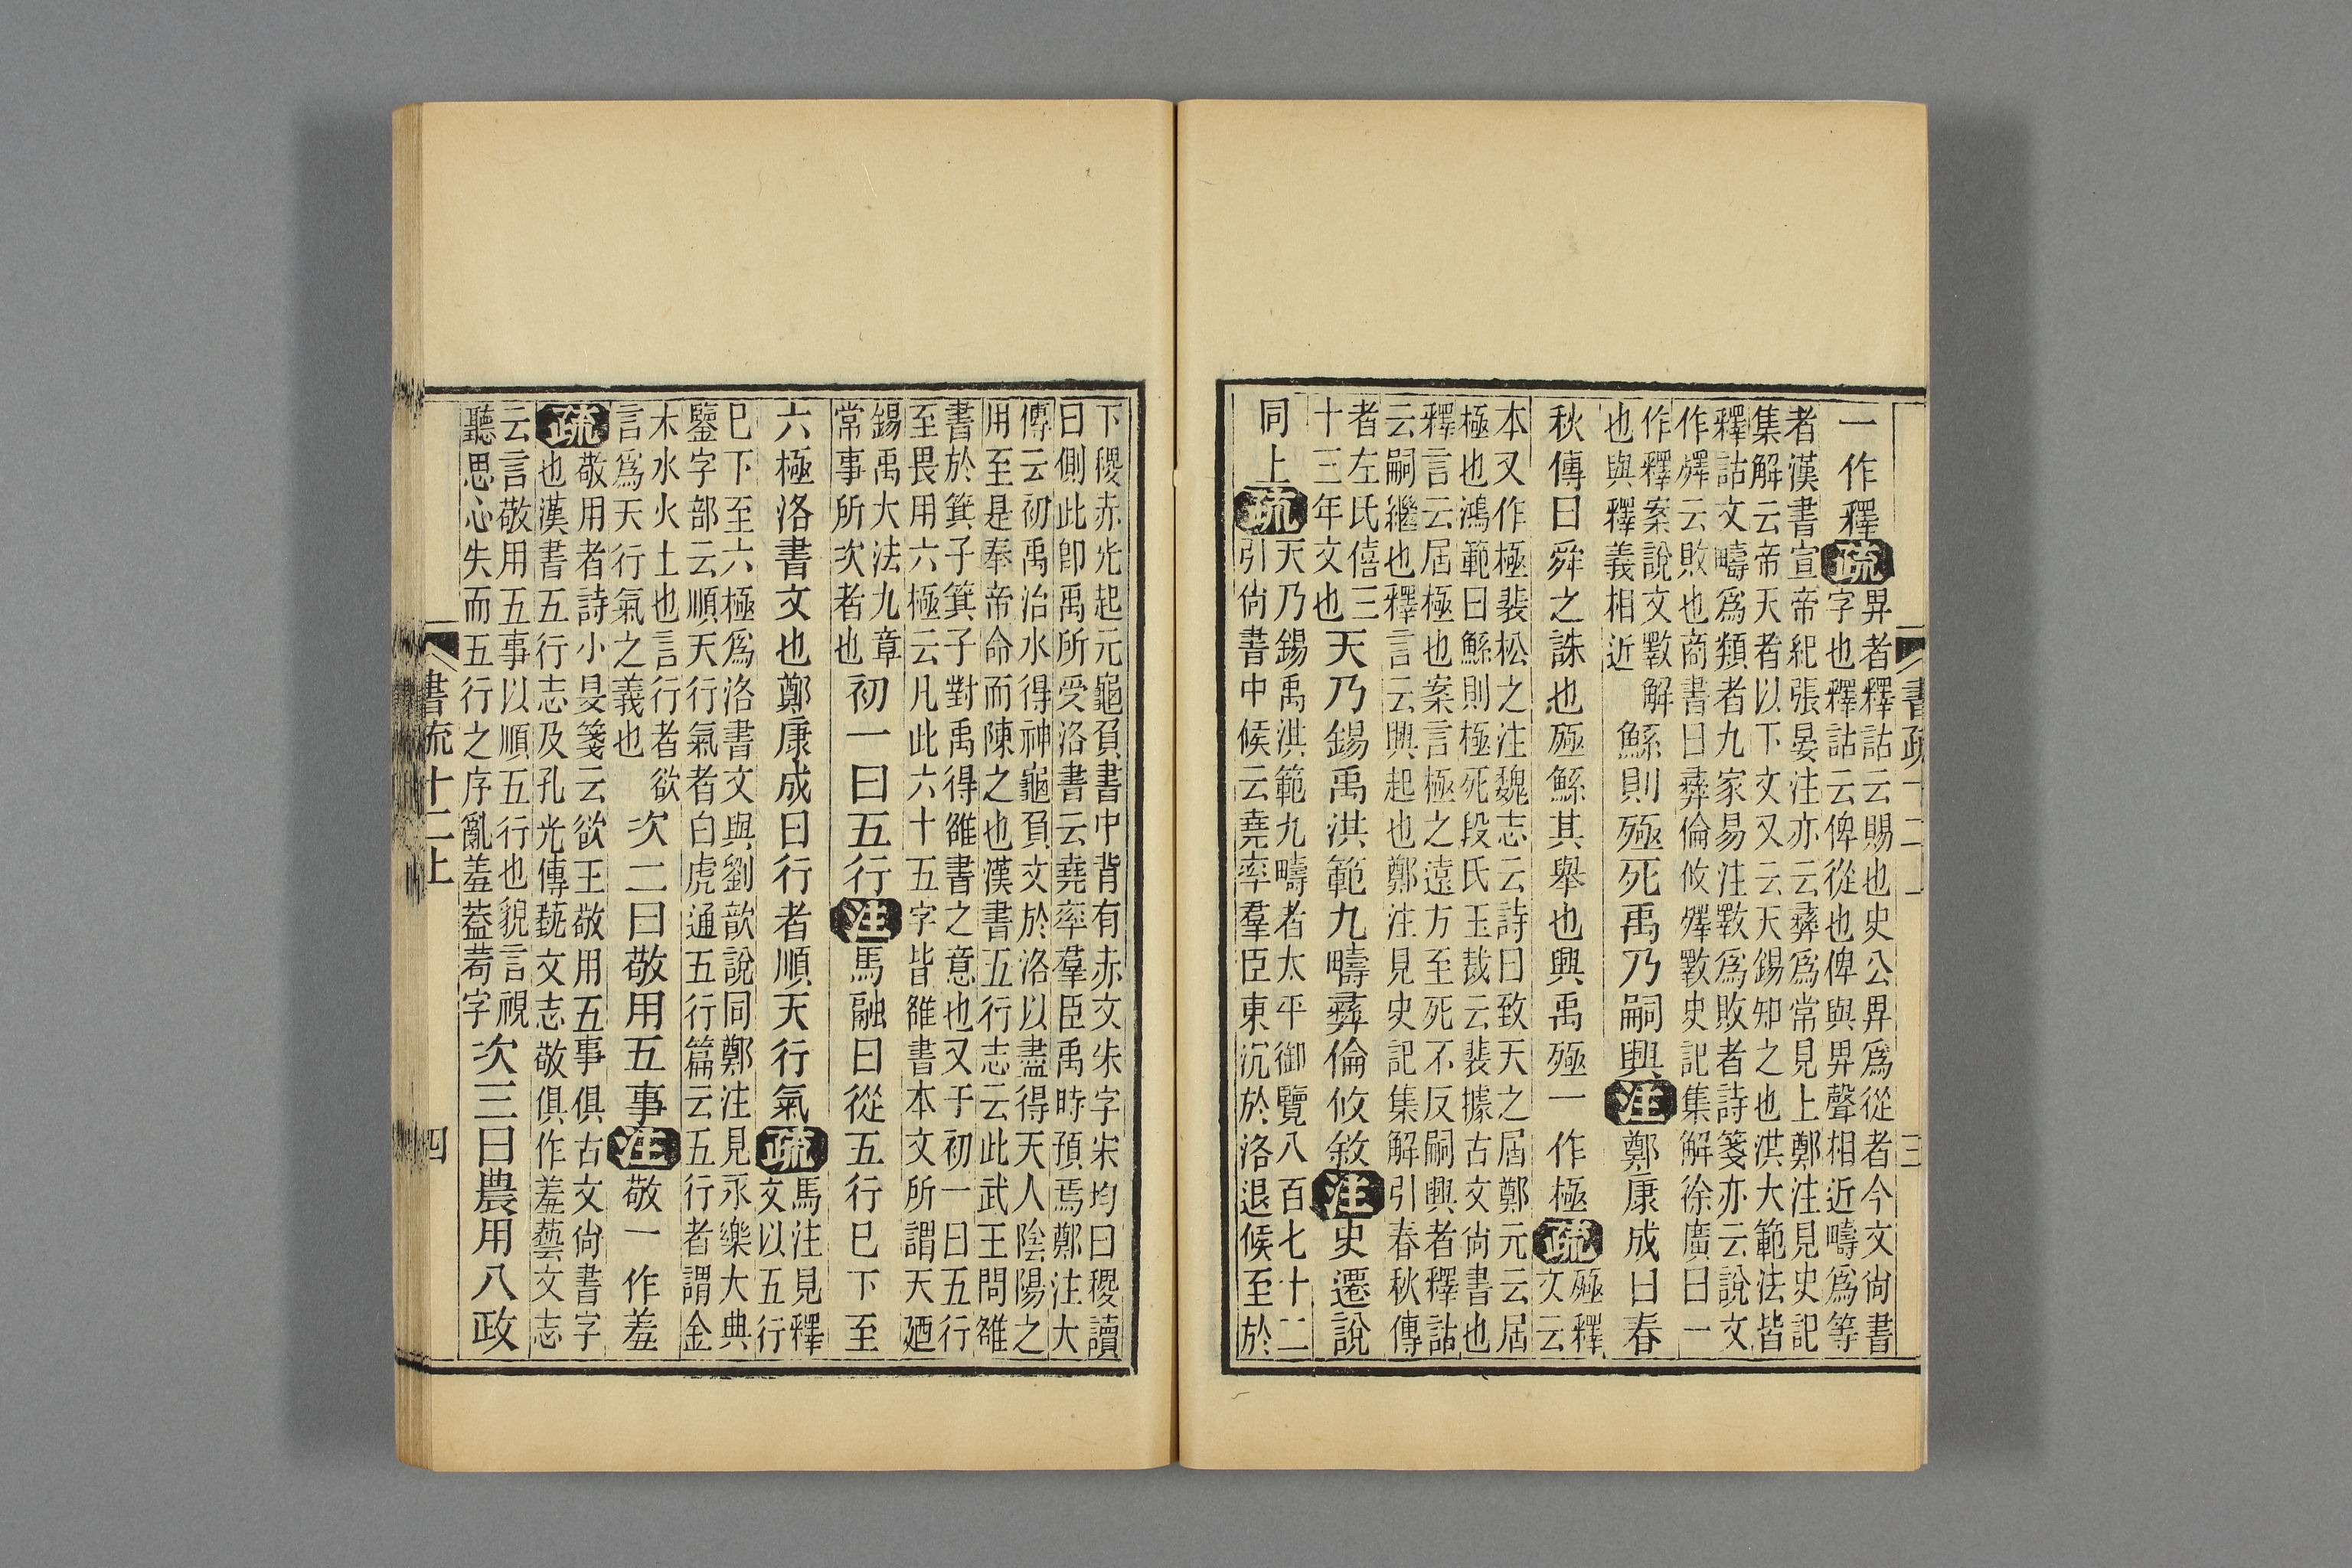 書疏十二上 三
一作釋疏
畀者釋詁云賜也史公畀爲從者今文尙書
字也釋詁云俾從也俾與畀聲相近疇爲等
者漢書宣帝紀張晏注亦云彝爲常見上鄭注見史記
集解云帝天者以下文又云天錫知之也洪大範法皆
釋詁文疇爲類者九家易注斁爲敗者詩箋亦云說文
作殬云敗也商書曰彝倫攸殬斁史記集解徐廣曰一
作釋案說文斁解
也與釋義相近
鯀則殛死禹乃嗣興注鄭康成曰春
秋傳曰舜之誅也殛鯀其舉也興禹殛一作極疏
殛釋
文云
本又作極裴松之注魏志云詩曰致天之屆鄭元云屆
極也鴻範曰鯀則極死段氏玉裁云裴據古文尙書也
釋言云屆極也案言極之遠方至死不反嗣興者釋詁
云嗣繼也釋言云興起也鄭注見史記集解引春秋傳
者左氏僖三
十三年文也
天乃錫禹洪範九疇彝倫攸敘注史遷說
同上疏
天乃錫禹洪範九疇者太平御覽八百七十二
引尙書中候云堯率羣臣東沉於洛退候至於
下稷赤光起元龜負書中背有赤文朱字宋均曰稷讀
曰側此卽禹所受洛書云堯率羣臣禹時預焉鄭注大
傳云初禹治水得神龜負文於洛以盡得天人陰陽之
用至是奉帝命而陳之也漢書五行志云此武王問雒
書於箕子箕子對禹得雒書之意也又于初一曰五行
至畏用六極云凡此六十五字皆雒書本文所謂天廼
錫禹大法九章
常事所次者也
初一曰五行注馬融曰從五行已下至
六極洛書文也鄭康成曰行者順天行氣疏
馬注見釋
文以五行
已下至六極爲洛書文與劉歆說同鄭注見永樂大典
鑒字部云順天行氣者白虎通五行篇云五行者謂金
木水火土也言行者欲
言爲天行氣之義也
次二曰敬用五事注敬一作羞
疏
敬用者詩小旻箋云欲王敬用五事俱古文尙書字
也漢書五行志及孔光傳蓺文志敬俱作羞藝文志
云言敬用五事以順五行也貌言視
聽思心失而五行之序亂羞葢茍字
次三曰農用八政
書疏十二上 四